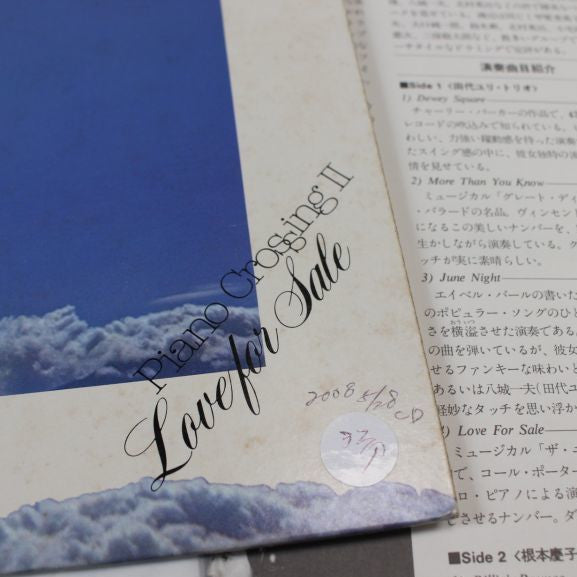 Piano Crossing II
Love for Sale
2008 5/28
CD
演奏曲目紹介
■Side 1〈田代ユリ・トリオ〉
1) Dewey Square
チャーリー・パーカーの作品で、
レコードの吹込みで知られている。
わしい、力強い躍動感を持った演奏
たスイング感の中に、彼女独特の
情を見せている。
2) More Than You Know
ミュージカル「グレート・ディ
・バラードの名品。ヴィンセン
になるこの美しいナンバーを、
生かしながら演奏している。
ッチが実に素晴らしい。
3) June Night
エイベル・バールの書いた
のポピュラー・ソングのひと
さを横溢させた演奏である
の曲を弾いているが、彼女
せるファンキーな味わいと
あるいは八城一夫(田代ユ
軽妙なタッチを思い浮か
) Love For Sale
ミュージカル「ザ・ニ
で、コール・ポータ
ロ・ピアノによる演
とさせるナンバー。ダ
■Side 2〈根本慶子